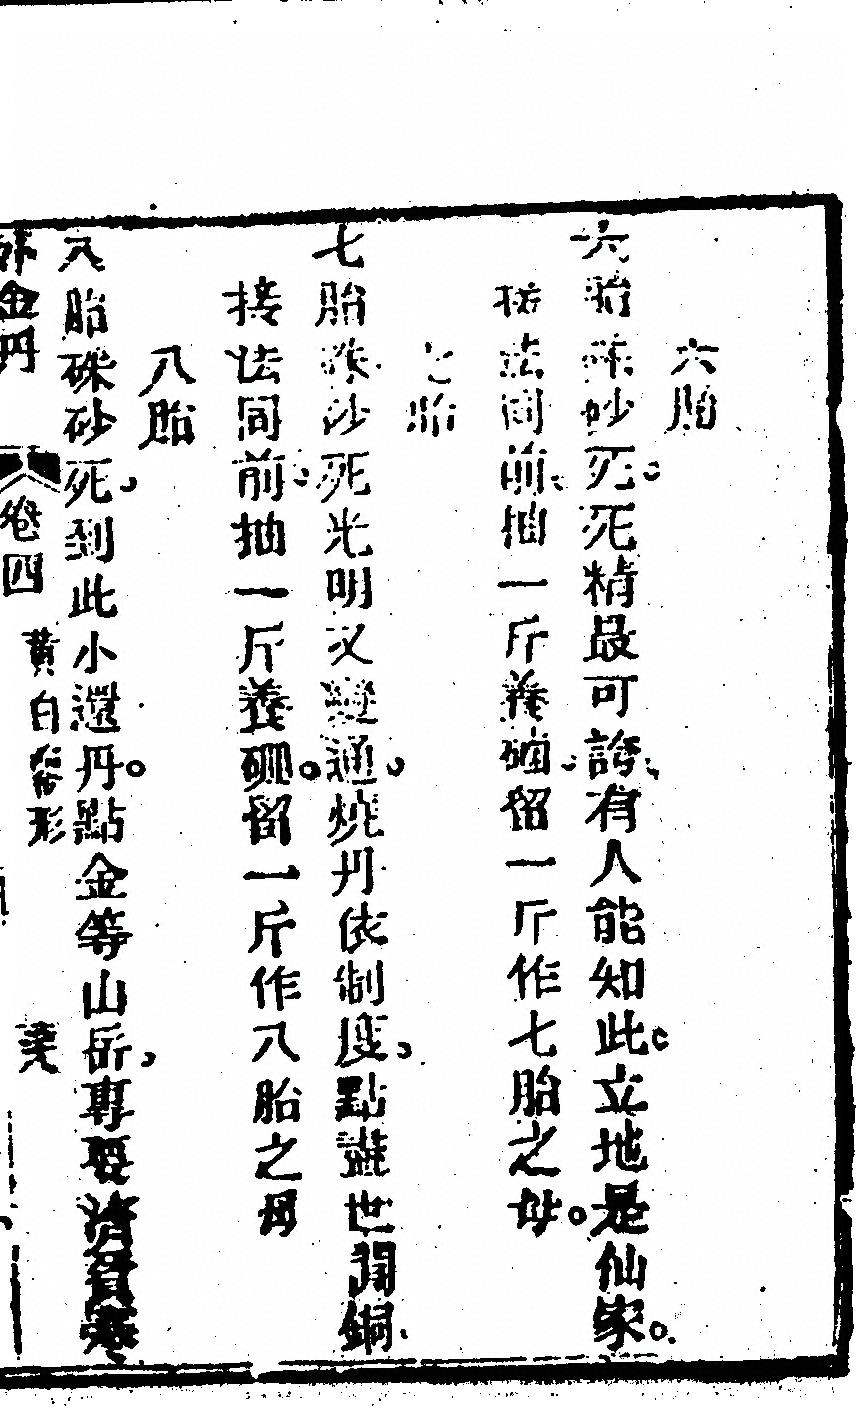 六胎
六胎硃砂死死精最可誇有人能知此立地是仙家
接法同前抽一斤養硇留一斤作七胎之母
七胎
七胎硃砂死光明又變通燒丹依制度點盡世間銅
接法同前抽一斤養硇留一斤作八胎之母
八胎
八胎硃砂死到此小還丹點金等山岳專要濟貧寒
外金丹
卷四
黃白鑑形